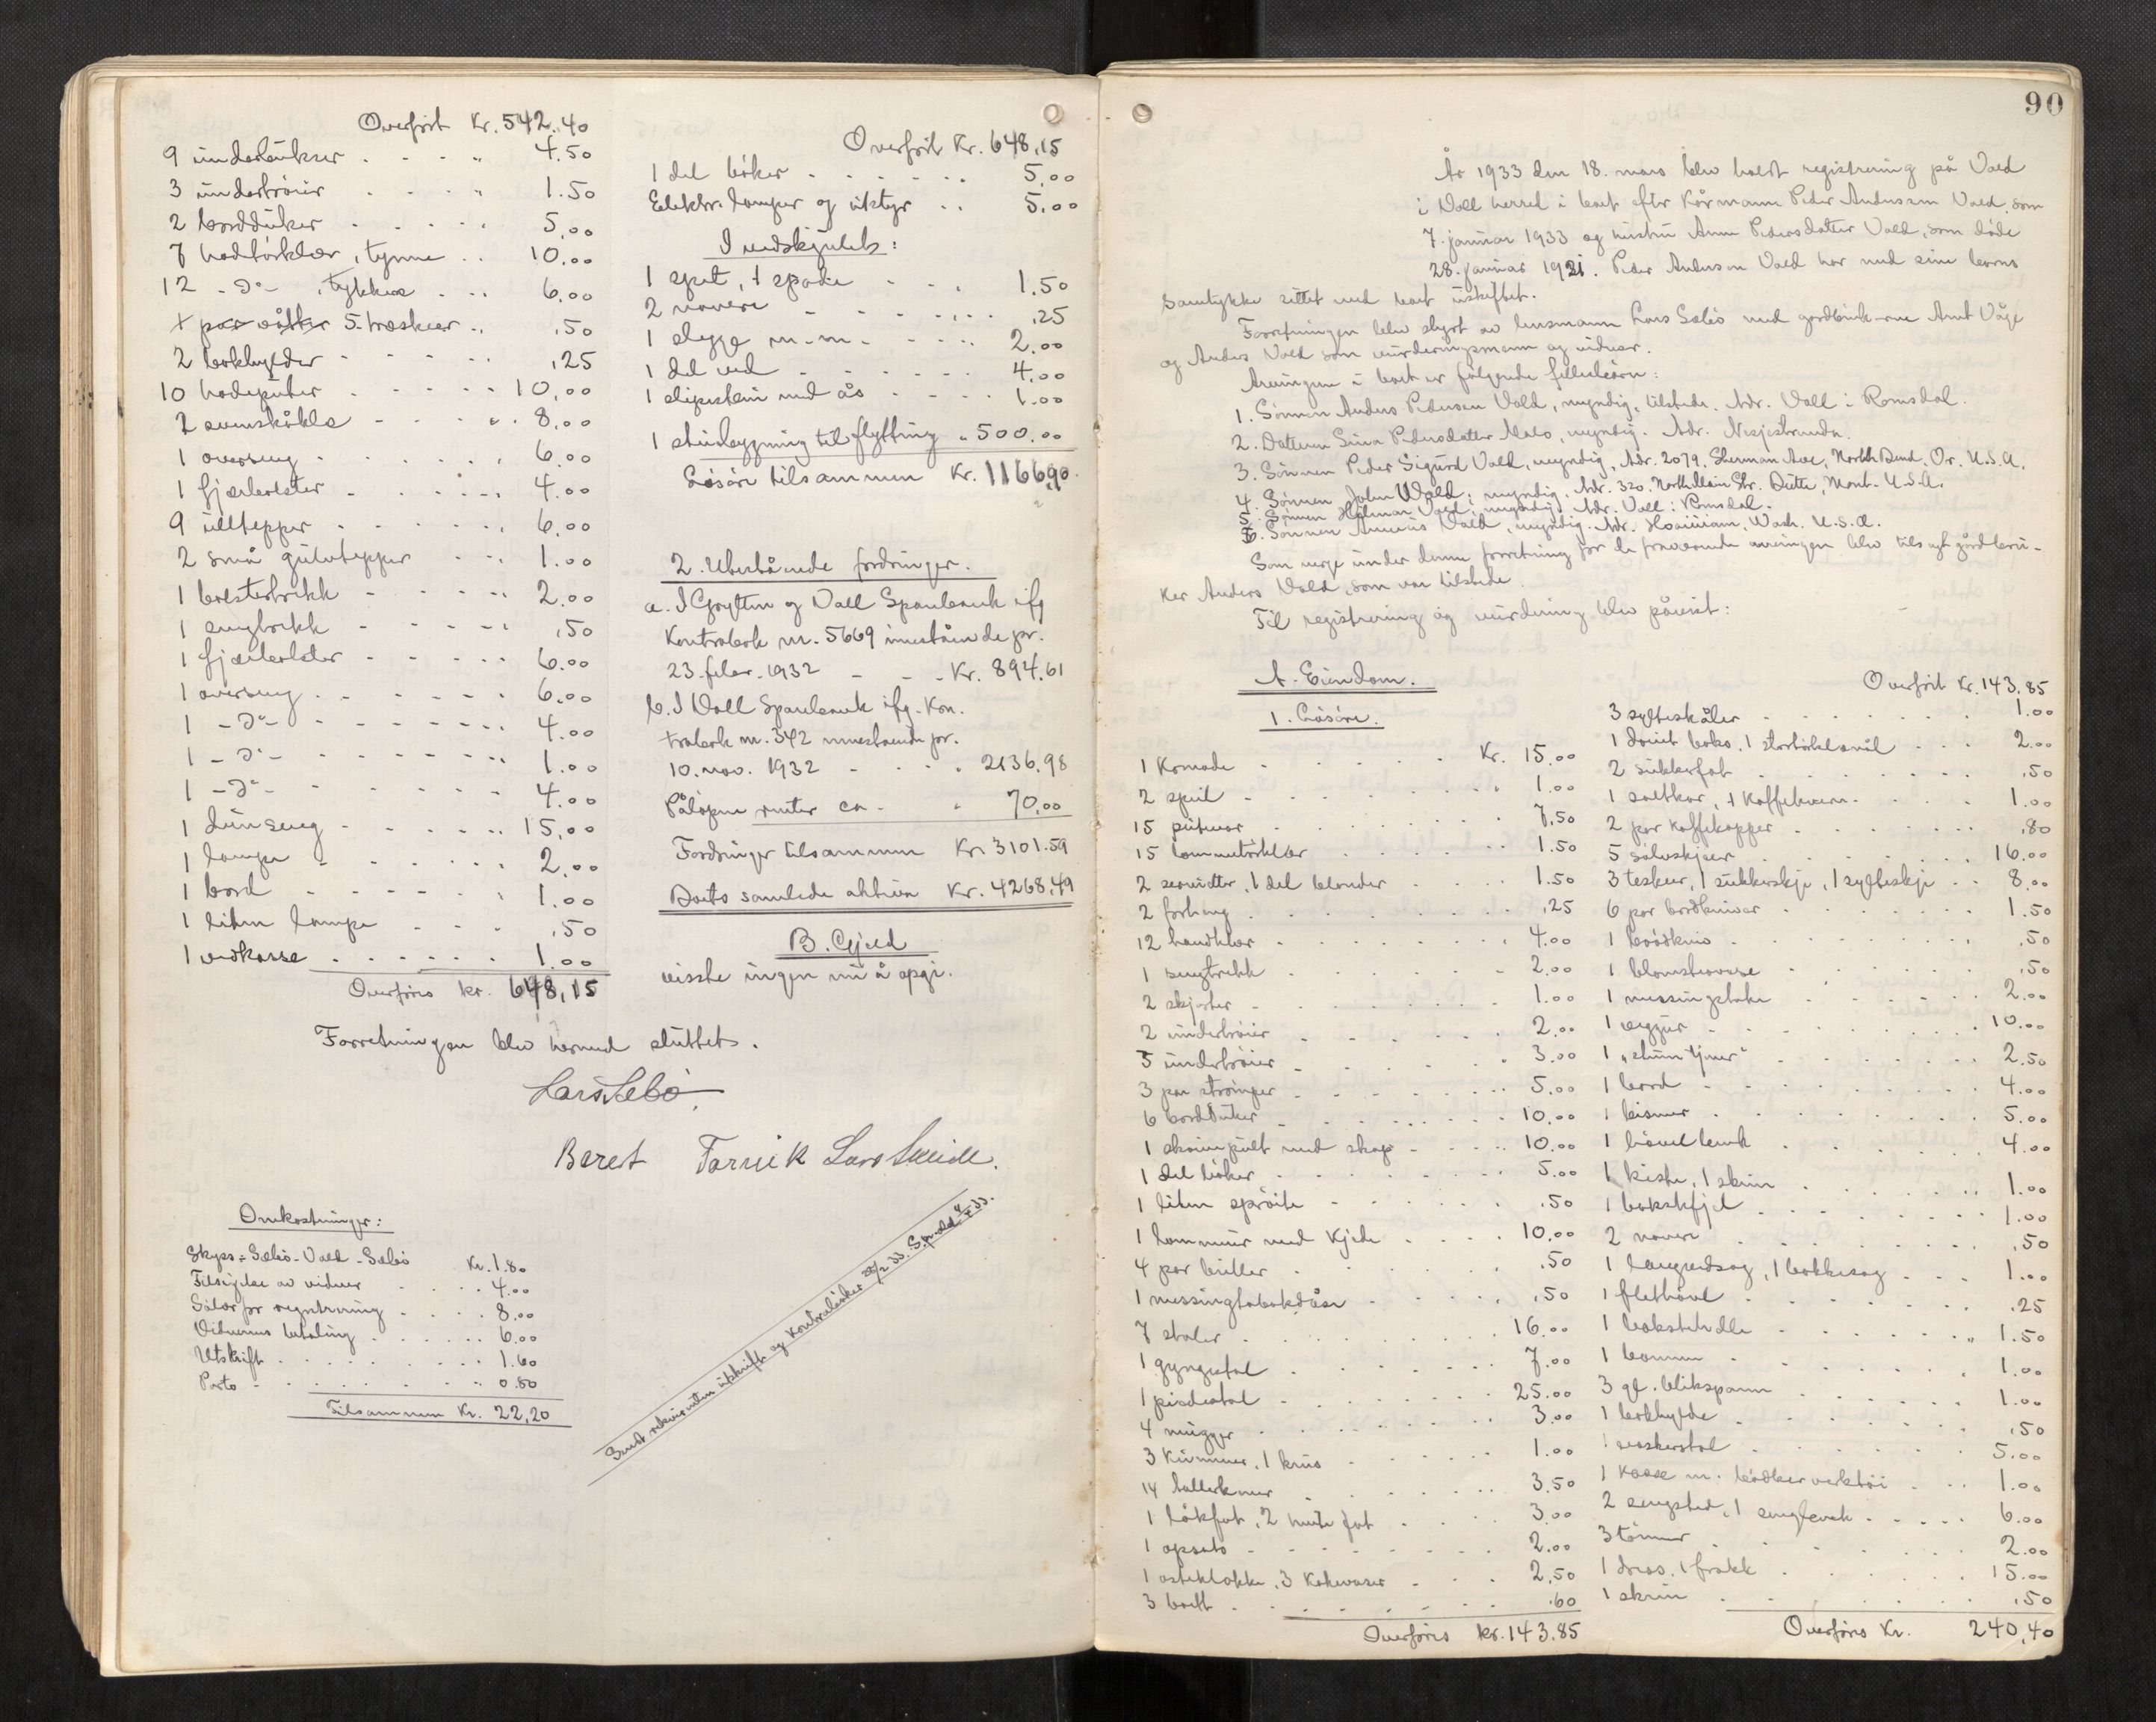 Overført Kr. 542.40
9 underbukser . . . " 4.50
3 undertrøier . . . " 1.50
2 bordduker . . . . 5.00
7 hodtørklær, tynne . . 10.00
12 -"- , tykkere . . . 6.00
5 træskeer . . .50
2 bokhylder . . . . .25
10 hodeputer . . . . 10.00
2 . . . . 8.00
1 overseng . . . . . 6.00
1 fjærbolster . . . . 4.00
9 ulltepper . . . . . 6.00
2 små gulvtepper . . . 1.00
1 bolstertrekk . . . . 2.00
1 sengtrekk . . . . .50
1 fjærbolster . . . . 6.00
1 overseng . . . . . 6.00
1 -"- . . . . . . 4.00
1 -"- . . . . . . 1.00
1 -"- . . . . . . 4.00
1 dunseng . . . . . 15.00
1 lampe . . . . . 2.00
1 bord . . . . . 1.00
1 liten lampe . . . .50
1 vedkasse . . . . . . 1.00
Overføres kr. 648,15
Overført Kr. 648,15
1 del bøker . . . . . . 5.00
Elektr. lamper og utstyr . . 5.00
I vedskjulet:
1 spet, 1 spade . . . 1.50
2 navere . . . . . . .25
1 slegge m.m. . . . . 2.00
1 del ved . . . . . . 4.00
1 slipestein med ås . . . . 1.00
1 stuebygning til flytting " 500.00
Løsøre tilsammen Kr. 1166,90.
2. Utestående fordringer.
a. I Grytten og Voll Sparebank ifg
Kontrabok nr. 5669 innestående pr.
23. febr. 1932 - - - Kr. 894.61
b. I Voll Sparebank ifg. Kon.
trabok nr. 342 innestaaende pr.
10. nov. 1932 - . . . 2136.98
Påløpne renter ca. - " 70.00
Fordringer tilsammen Kr. 3101.59
Boets samlede aktiva Kr. 4268,49
B. Gjeld
visste ingen nu å opgi.
Forretningen blev hermed sluttet.
Lars Sebø
Beret Farvik Lars Smide.
Omkostninger:
Skyss: Sæbø - Vold - Sæbø Kr. 1.80
Tilsigelse av vidner . . . . 4.00
Salær for registrering . . . . 8.00
Vidnernes betaling . . . . . 6.00
Utskrift . . . . . . . . 1.60
Porto . . . . . . . . . " 0.80
Tilsammen Kr. 22,20
Sendt rekvirenten utskrift og kontrabøker
90
År 1933 den 18. mars blev holdt registrering på Vold
i Voll herred i boet efter Kårmann Peder Andersen Vold, som
7. januar 1933 og hustru Anne Pedersdatter Vold, som døde
28. januar 1921. Peder Andersen Vold har med sine barns
samtykke sittet med boet uskiftet.
Forretningen blev styrt av lensmann Lars Sæbø med gårdbruk-erne Arnt Våge
og Anders Vold som vurderingsmenn og vidner.
Arvinger i boet er følgende fellesbørn:
1. Sønnen Anders Pedersen Vold, myndig, tilstede. Adr. Voll i Romsdal.
2. Datteren Sina Pedersdatter Malo, myndig. Adr. Nesjestranda.
3. Sønnen Peder Sigurd Vold, myndig, Adr. 2079, Sherman Ave, North Bend. Or. U.S.A.
4. Sønnen John Wold, myndig. Adr. 320. North Main Str. Butte, Mont. U.S.A.
5. Sønnen Hilmar Vold, myndig. Adr. Voll i Romsdal.
6. Sønnen Vold, myndig. Adr. Hoquiam, Wash. U.S.A.
Som verge under denne forretning for de fraværende arvinger blev tilsagt gårdbru-
ker Anders Vold, som var tilstede.
Til registrering og vurdering blev påvist:
A. Eiendom.
1. Løsøre.
1 Komode - . . . . Kr. 15.00
2 speil - . . . . . . " 1.00
15 putevar . . . . . . . 7.50
15 lommetørklær . . . . . 1.50
2 servietter, 1 del blonder . . . . 1.50
2 forheng . . . . . . . . .25
12 handklær . . . . . . . . 4.00
1 sengtrekk . . . . . . . 2.00
2 skjorter . . . . . . . 1.00
2 undertrøier . . . . . . 2.00
5 undertrøier . . . . . . 3.00
3 par strømper . . . . . . 5.00
6 bordduker . . . . . . . 10.00
1 skrivepult med skap . . . . 10.00
1 del bøker . . . . . . . 5.00
1 liten sprøite . . . . . . .50
1 lommeur med Kjede . . . . 10.00
4 par briller . . . . . . . .50
1 messingtobakdåse . . . . . .50
7 stoler . . . . . . . . 16.00
1 gyngestol . . . . . . . 7.00
1 pidestal . . . . . . . 25.00
4 mugger . . . . . . . 3.00
3 Kummer, 1 krus . . . . . 1.00
14 tallerkner . . . . . . 3.50
1 låkfat, 2 fat . . . . 3.00
1 opsats . . . . . . . . 2.00
1 osteklokke, 3 Kakevaser . . . 2,50
3 brett . . . . . . . . .60
Overføres kr. 143.85
Overført Kr. 143,85
3 sylteskåler . . . . . . . 1.00
2.00
2 sukkerfat . . . . . . .50
1 saltkar, 1 Kaffekvern . . . . 1.00
2 par Kaffekopper . . . . . . .80
5 sølvskjeer . . . . . . . 16.00
3 teskeer, 1 sukkerskje, 1 sylteskje . . 8.00
6 par bordkniver . . . . . . 1.50
1 brødkniv . . . . . . . . .50
1 blomstervase . . . . . . .50
1 messingstake . . . . . . 2.00
1 veggur . . . . . . . . 10.00
1 . . . . . . 2.50
1 bord . . . . . . . . 4.00
1 bismer . . . . . . . . 5.00
1 høvelbenk . . . . . . . 4.00
1 kiste, 1 skrin . . . . . . 1.00
1 bakstfjel . . . . . . . 1.00
2 navere . . . . . . . . .50
1 langvedsag, 1 bakkesag . . . 1.00
1 fletthøvel . . . . . . . .25
1 bakstehelle . . . . . . " 1.50
1 . . . . . . . 1.00
3 gl. blikspann . . . . . . 1.00
1 bokhylde . . . . . . . .50
1 . . . . . . . 5.00
1 Kasse m. bødkerverktøi . . . 1.00
2 sengsted, 1 sengbenk . . . . . 6.00
3 tønner . . . . . . . 2.00
1 dress, 1 frakk . . . . . . 15.00
1 skrin . . . . . . . . .50
Overføres Kr. 240,40